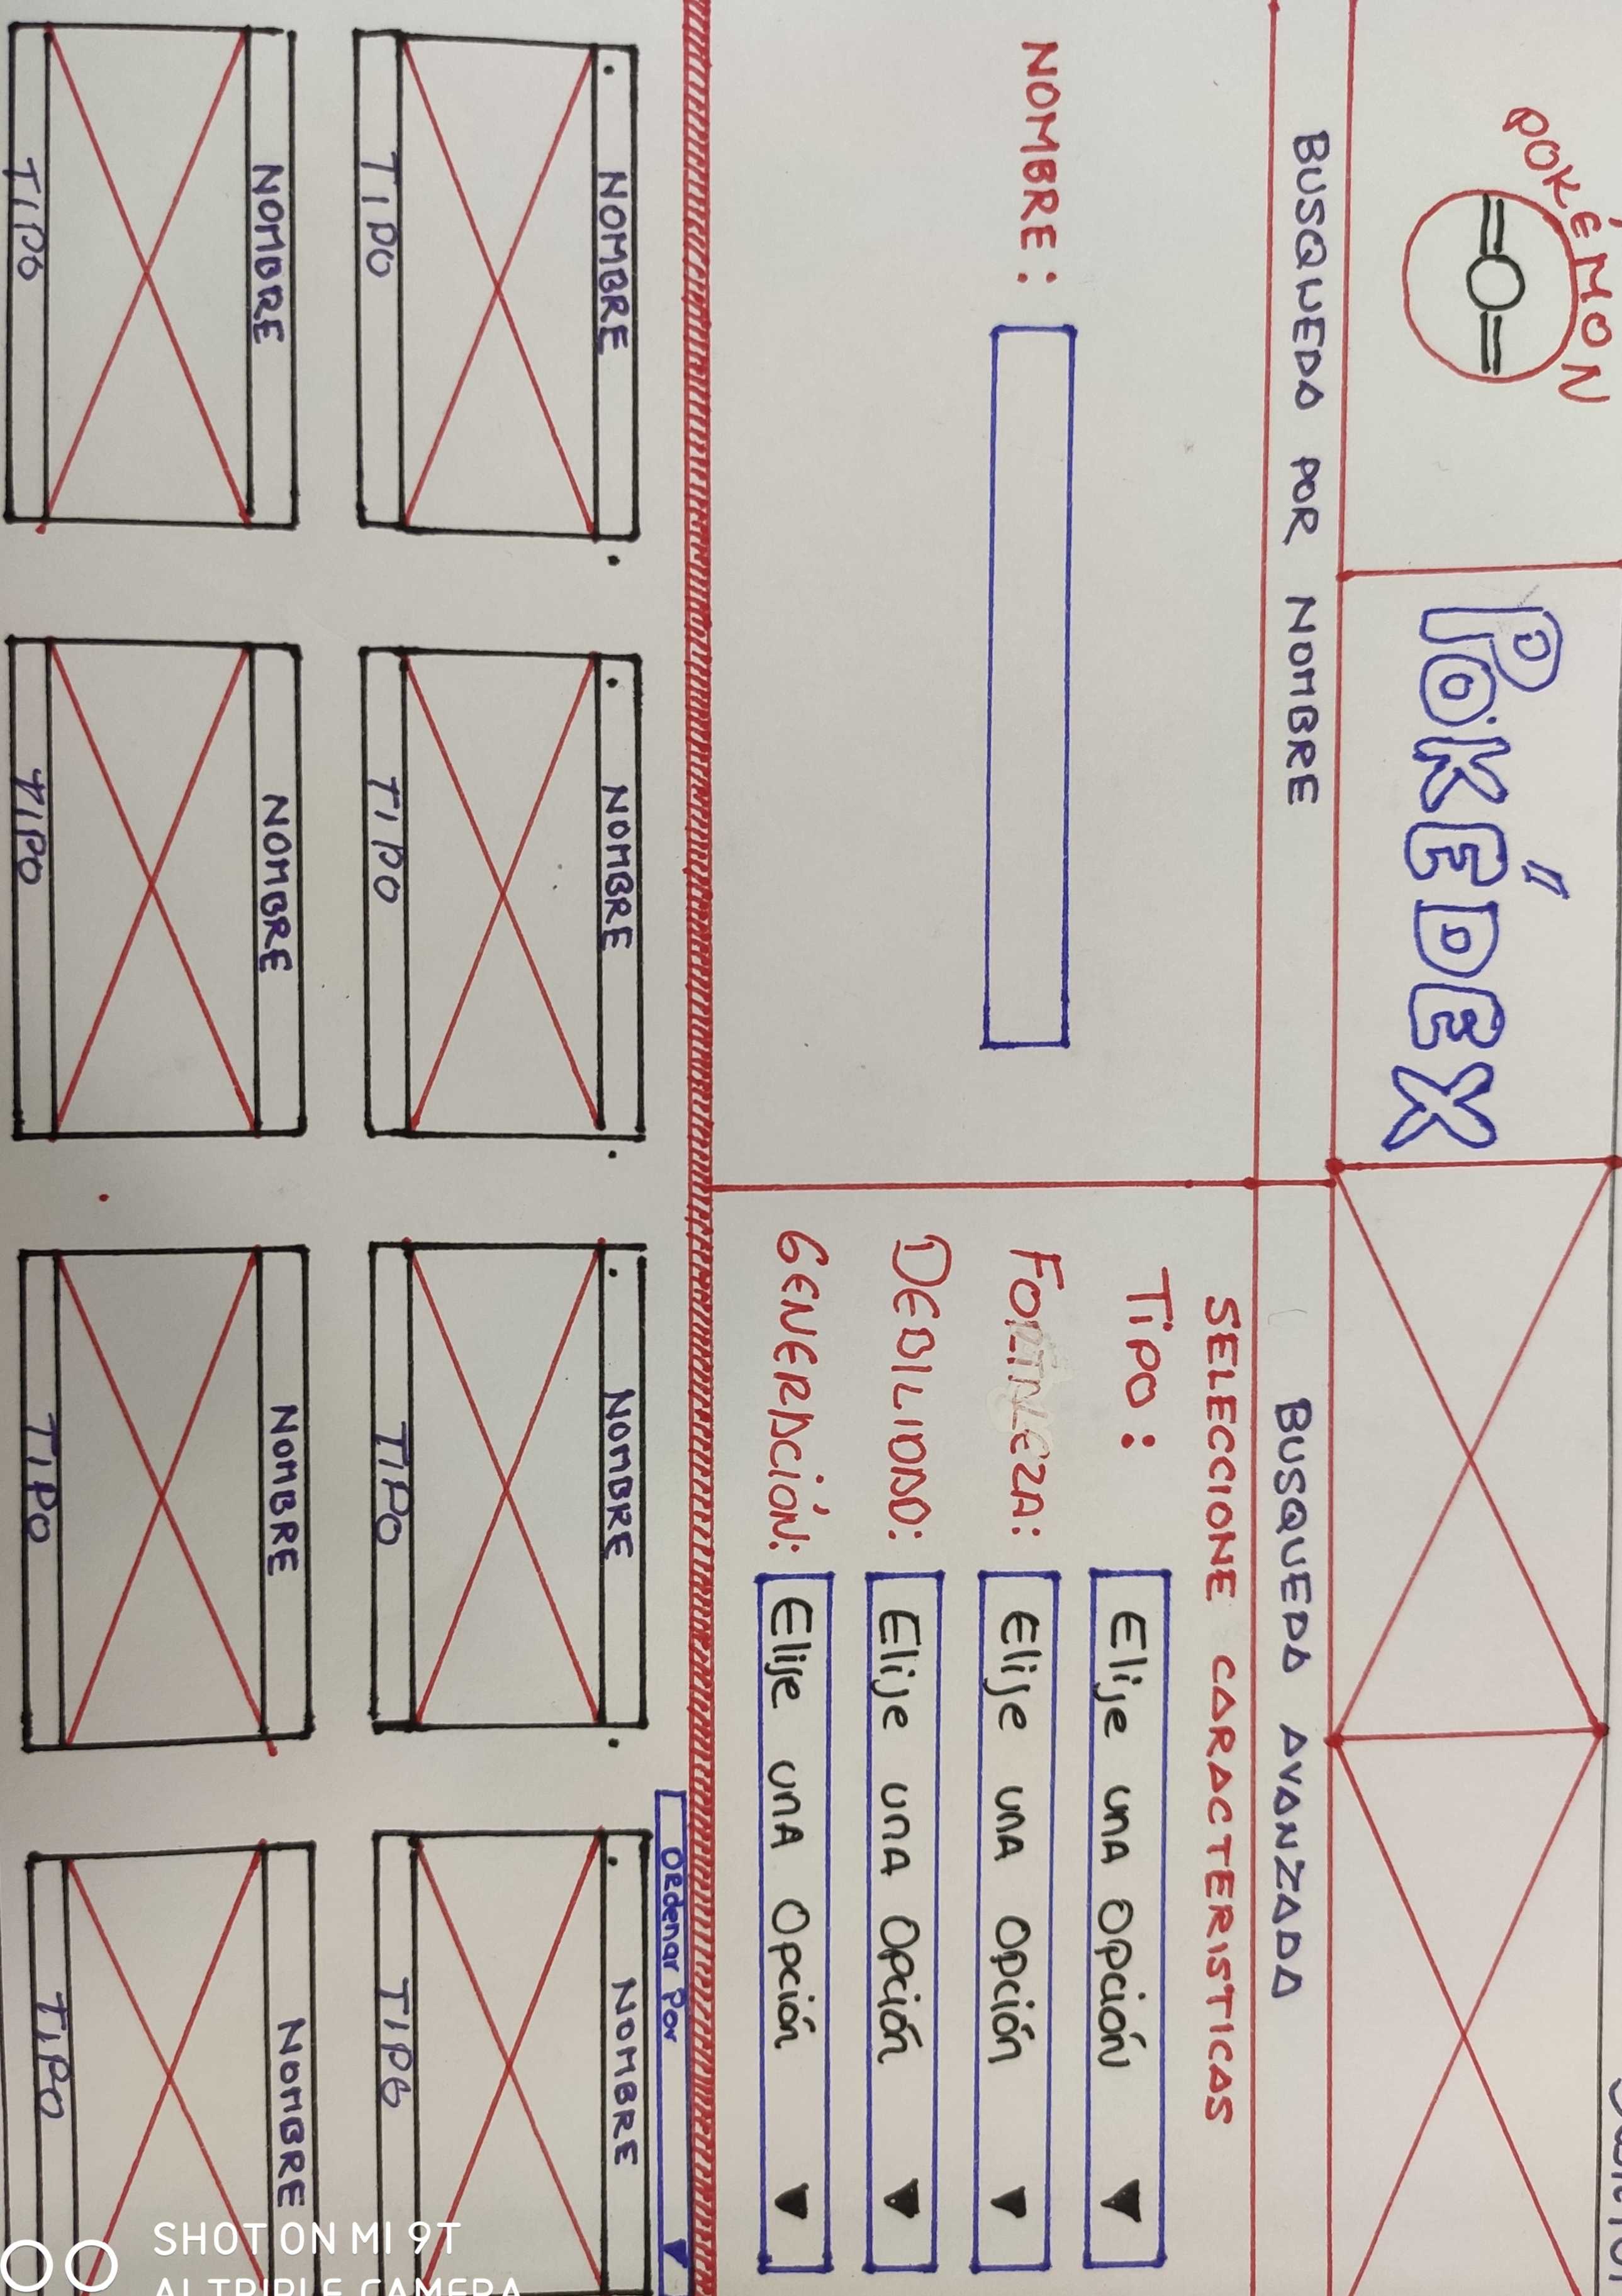 POKÉMON
POKÉDEX
BUSQUEDA POR NOMBRE
BUSQUEDA AVANZADA
SELECCIONE CARACTERISTICAS
NOMBRE:
TiPO: Elije una Opción
FORTALEZA: Elije una Opción
DEBILIDAD: Elije una Opción
GENERACIÓN: Elije una Opción
Ordenar Por
NOMBRE NOMBRE NOMBRE NOMBRE
TIPO TIPO TIPO TIPO
NOMBRE NOMBRE NOMBRE NOMBRE
TIPO TIPO TIPO TIPO
SHOT ON MI 9T
AI TRIPLE CAMERA